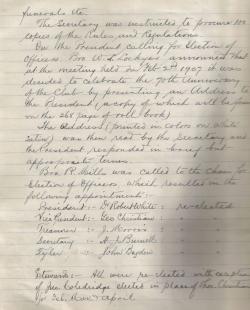 funerals etc
The Secretary was instructed to procure 100
copies of the Rules and Regulations.
On the President calling for Election of
Officers. Bro announced that
at the meeting held on Feb 2nd 1907 it was
decided to celebrate the 70th Anniversary
of the Club by presenting an Address to
the President (a copy of which will be
on the 268 page of roll book)
The Address (Printed in colors on White
Satin) was then read by the Secretary and
the President responded in brief but
appropriate terms.
Bro R Mills was called to the Chair for
Election of Officers, which resulted in the
following appointments:-
President :- Dr Robert White :- re-elected
Vice President :- Geo Christian :- "
Treasurer :- J. Morris "
Secretary :- "
Tyler :- John Bayden "
Stewards :- All were re-elected with exception
of elected in place of Christian
for Feb. Mar & April